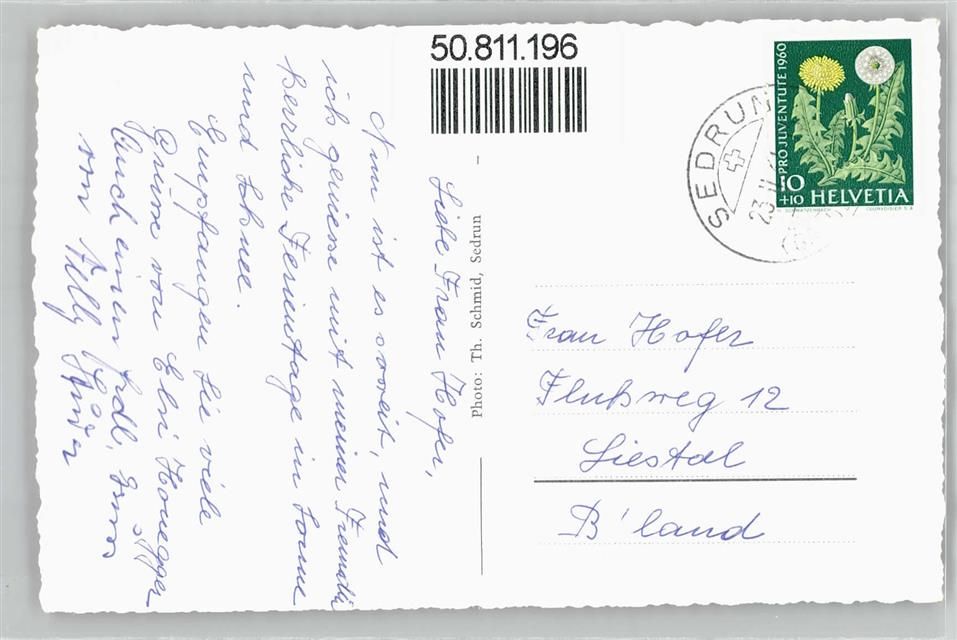 50.811.196
PRO JUVENTUTE 1960
10
+10 HELVETIA
SEDRUN
23.II.
Photo: Th. Schmid, Sedrun
Liebe Frau Hofer,
Nun ist es soweit, und
ich geniesse mit meiner Freundin
herrliche Ferientage in Sonne
und Schnee.
Empfangen Sie viele
Grüsse von Elsi Honegger
Auch einen frdl. Gruss
von
Frau Hofer
Flußweg 12
Liestal
B'land